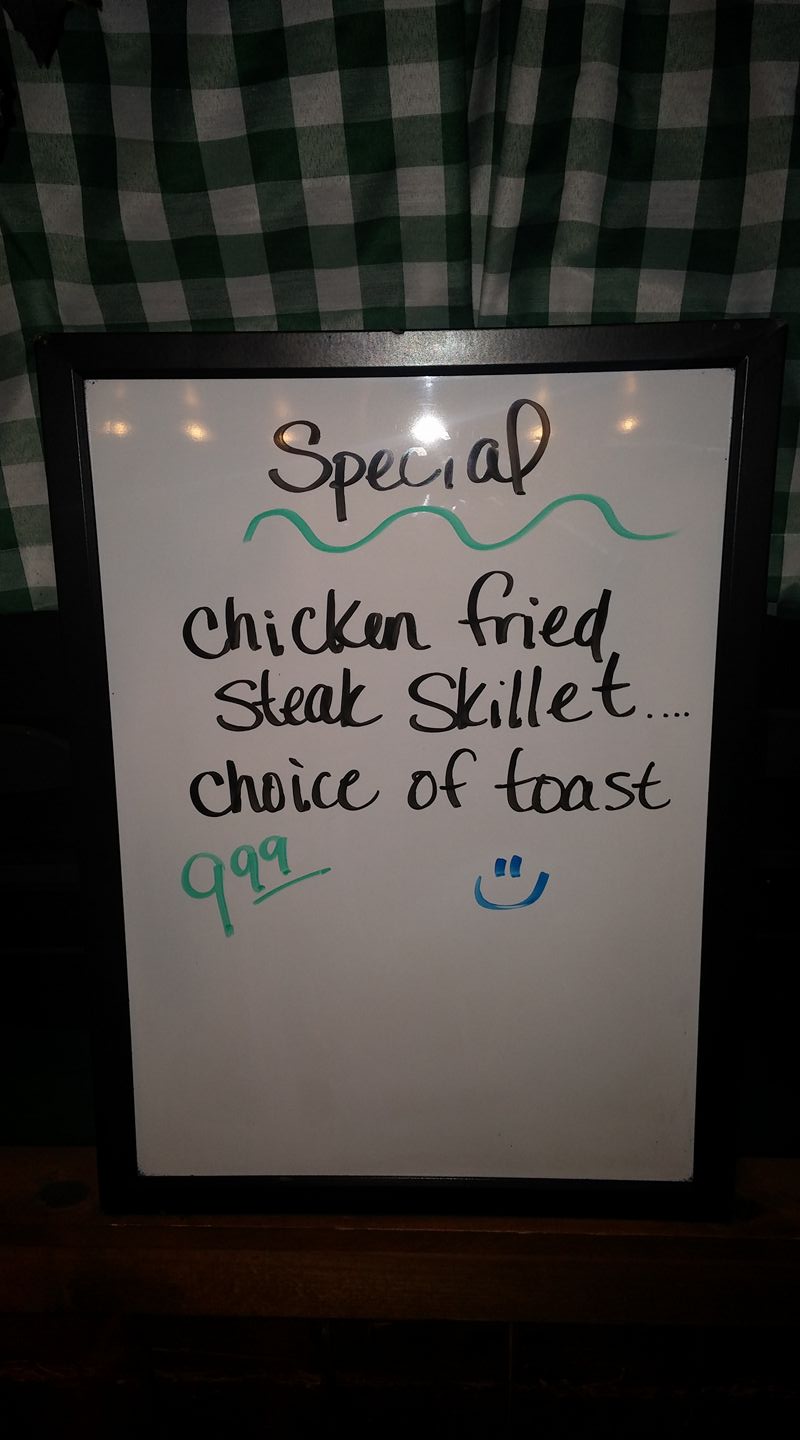 Special
Chicken fried
Steak Skillet....
choice of toast
999